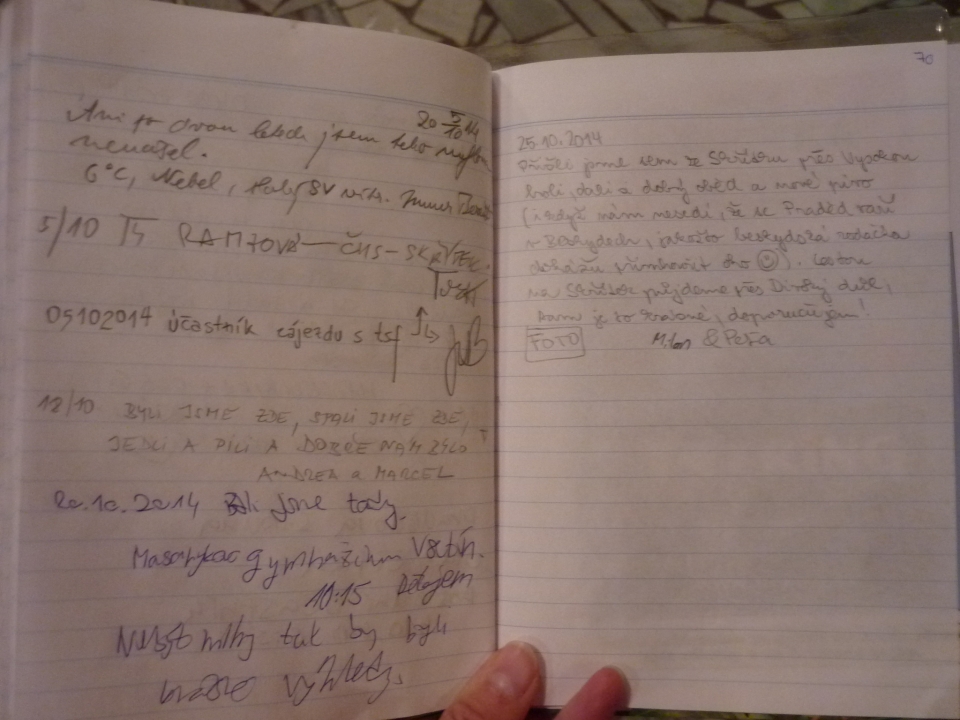 5/10 14
20
Ani po dvou letech jsem toho
nenašel.
6°C, Nebel, slabý SV vítr.
5/10 RAMZOVÁ – ČHS – SKŘÍTEK.
05102014 účastník zájezdu s tsf
12/10 BYLI JSME ZDE, SPALI JSME ZDE,
JEDLI A PILI A DOBŘE NÁM BYLO
ANDREA a MARCEL
20.10.2014 Byli jsme tady.
Masarykovo gymnázium Vsetín.
10:15
Nebýt mlhy tak by byli
krásné výhledy.
70
25.10.2014
Přišli jsme sem ze Skřítku přes Vysokou
holi, dali si dobrý oběd a mooc pivo
(i když nám nevadí, že se Praděd vaří
v Beskydech, jakožto beskydská rodačka
dokážu přimhouřit oko ☺). Cestou
na Skřítek půjdeme přes Divoký důl,
kam je to krásné, doporučujem!
FOTO Milan & Peťa